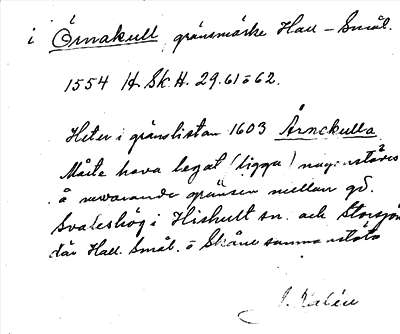 i Örnakull gränsmärke Hall – Smål.
1554 H. Sk. H. 29. 61 o 62.
Heter i gränslistan 1603 Årnckulla
Måste hava legat (ligga) någonstädes
å nuvarande gränsen mellan gd.
Svaleshög i Hishult sn. och Storsjön
där Hall. Smål. o Skåne sammanstöta
J. Kalén